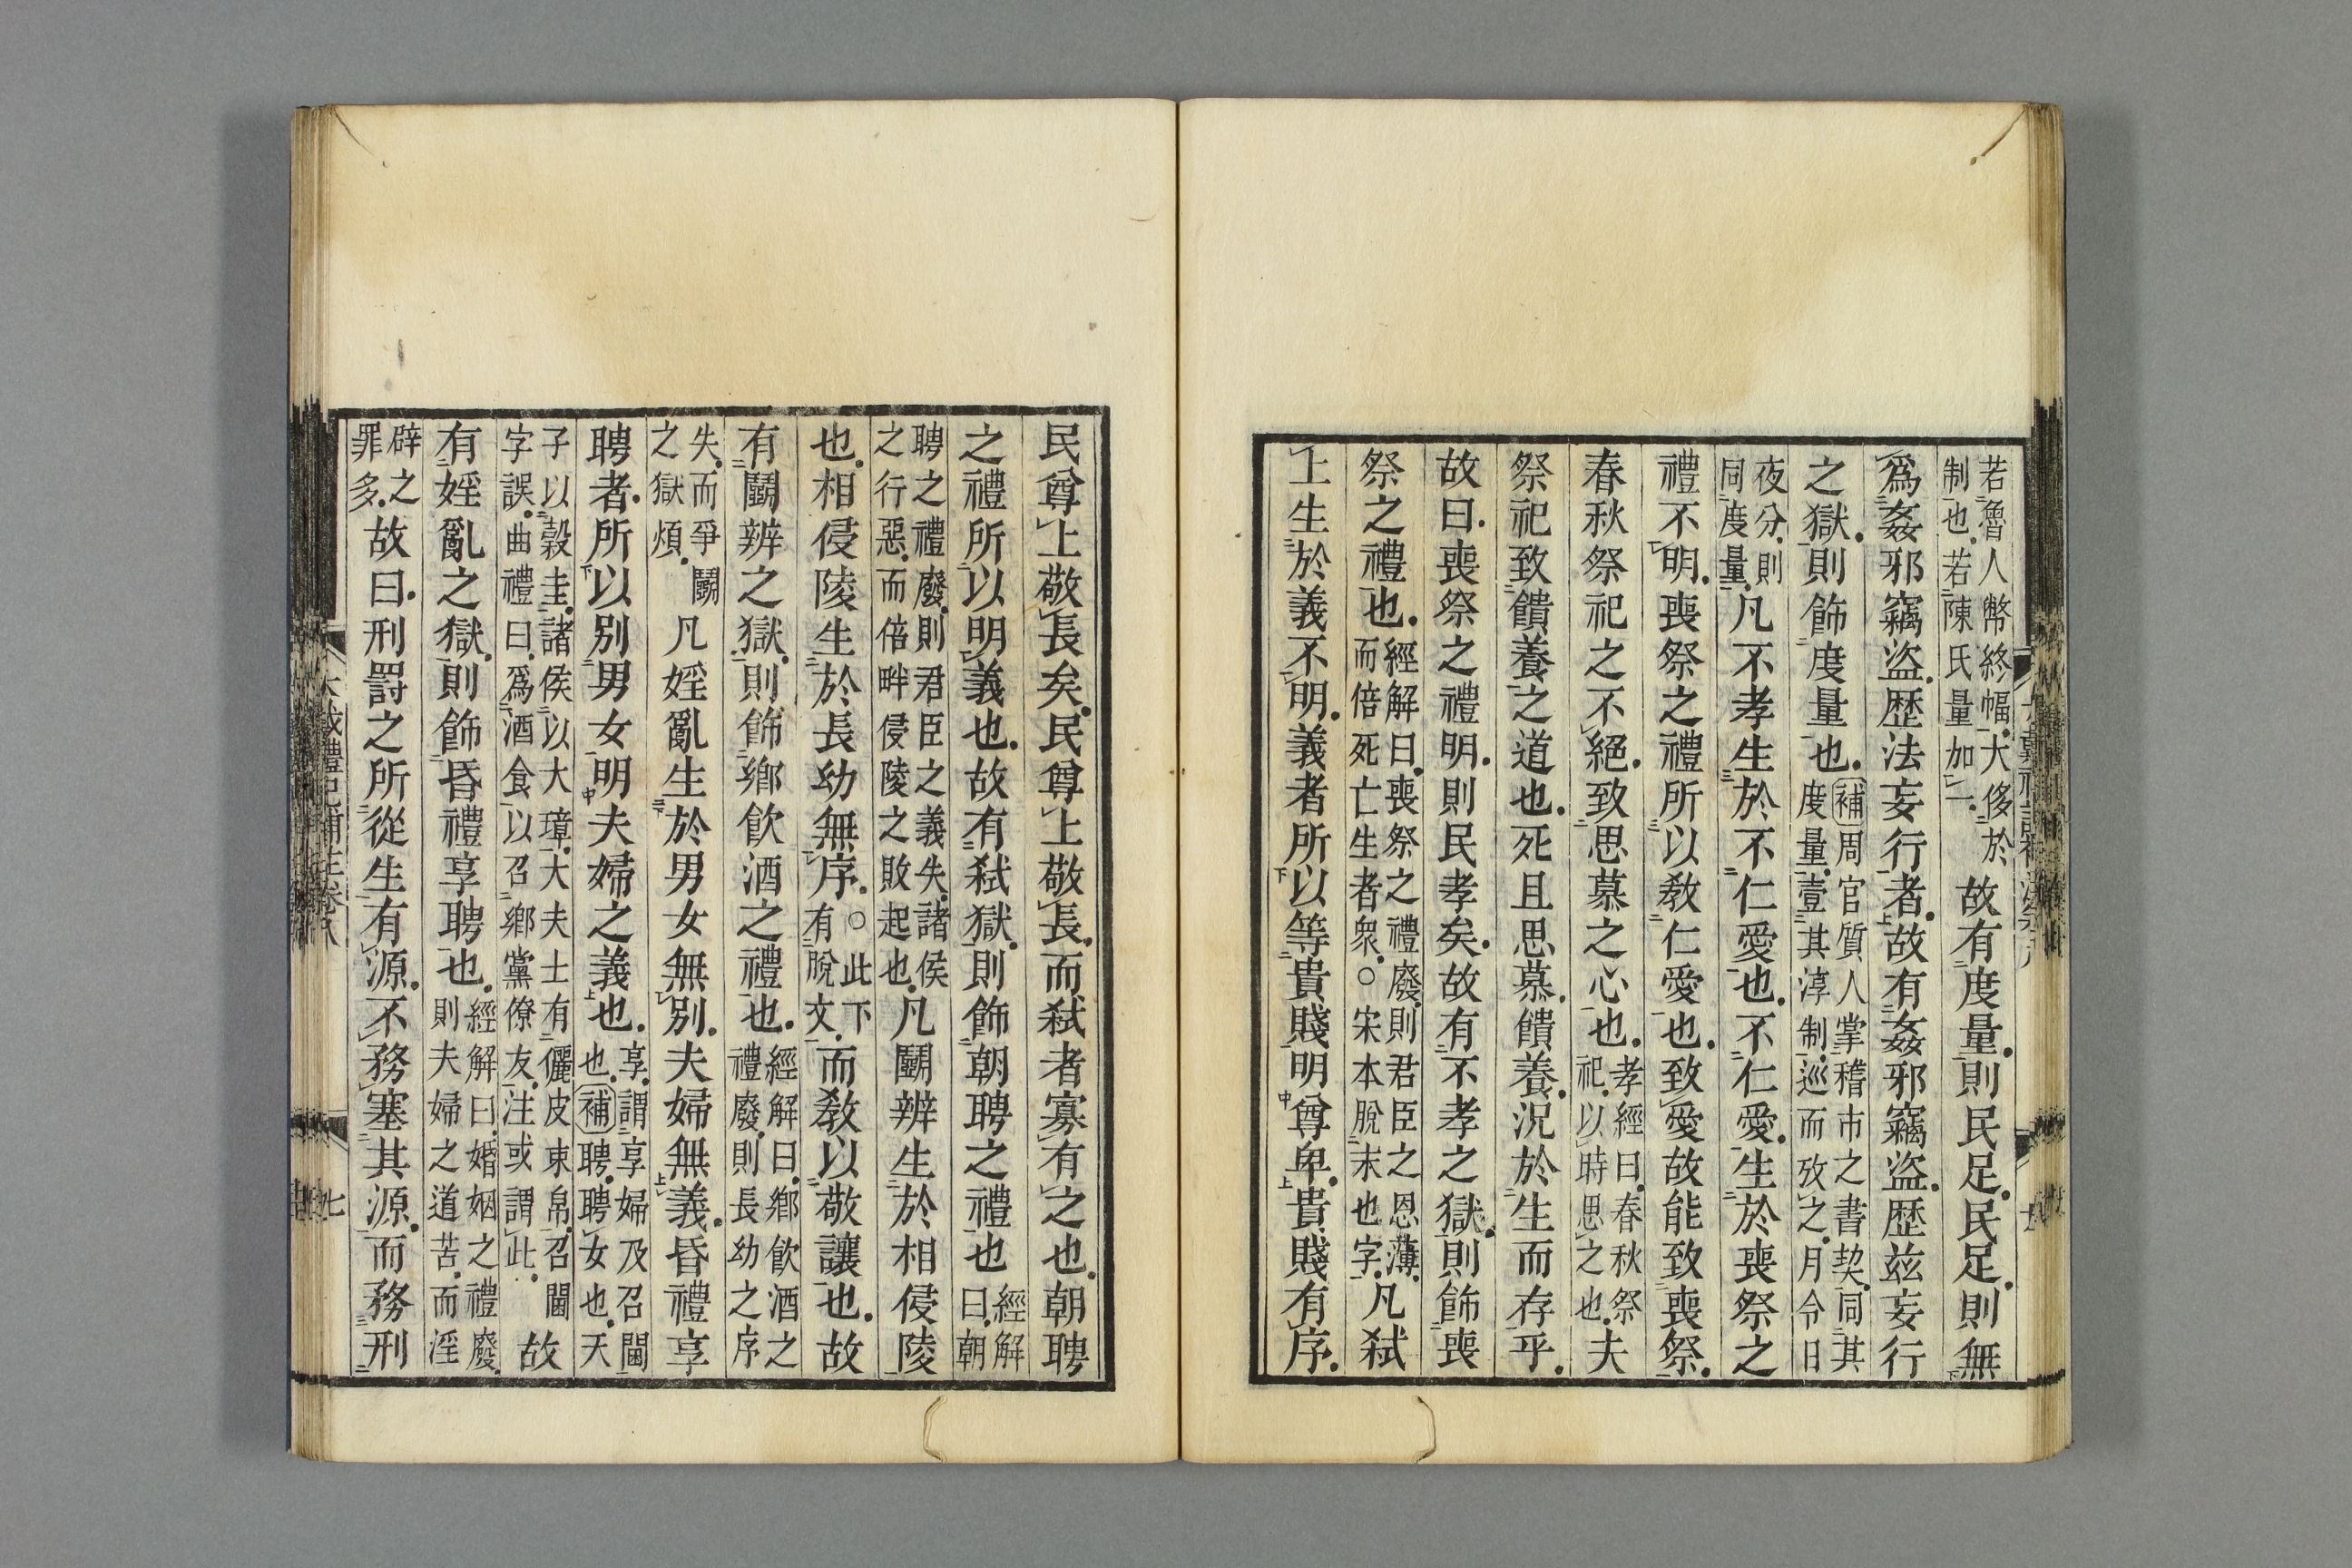 若魯人幣終幅大侈於
制也若陳氏量加一
故有度量則民足民足則無
爲姦邪竊盜歷法妄行者故有姦邪竊盜歷茲妄行
之獄則飾度量也
補周官質人掌稽市之書契同其
度量壹其淳制巡而攷之月令日
夜分則
同度量
凡不孝生於不仁愛也不仁愛生於喪祭之
禮不明喪祭之禮所以敎仁愛也致愛故能致喪祭
春秋祭祀之不絕致思慕之心也
孝經曰春秋祭
祀以時思之也
夫
祭祀致饋養之道也死且思慕饋養況於生而存乎
故曰喪祭之禮明則民孝矣故有不孝之獄則飾喪
祭之禮也
經解曰喪祭之禮廢則君臣之恩薄
而倍死亡生者衆○宋本脫末也字
凡弑
上生於義不明義者所以等貴賤明尊卑貴賤有序
民尊上敬長矣民尊上敬長而弑者寡有之也朝聘
之禮所以明義也故有弑獄則飾朝聘之禮也
經解
曰朝
聘之禮廢則君臣之義失諸侯
之行惡而倍畔侵陵之敗起也
凡鬭辨生於相侵陵
也相侵陵生於長幼無序
○此下
有脫文
而敎以敬讓也故
有鬭辨之獄則飾鄉飮酒之禮也
經解曰鄉飮酒之
禮廢則長幼之序
失而爭鬭
之獄煩
凡婬亂生於男女無別夫婦無義昏禮享
聘者所以別男女明夫婦之義也
享謂享婦及召閫
也補聘聘女也天
子以穀圭諸侯以大璋大夫士有儷皮束帛召閫
字誤曲禮曰爲酒食以召鄉黨僚友注或謂此
故
有婬亂之獄則飾昏禮享聘也
經解曰婚姻之禮廢
則夫婦之道苦而淫
辟之
罪多
故曰刑罰之所從生有源不務塞其源而務刑